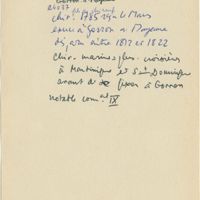 chir. 1785 rgn le Mans
exerce à Gorron en Mayenne
disparu entre 1812 et 1822
chir. marine = plus. croisières
à Martinique et St Domingue
avant de se fixer à Gorron
notable comal IX